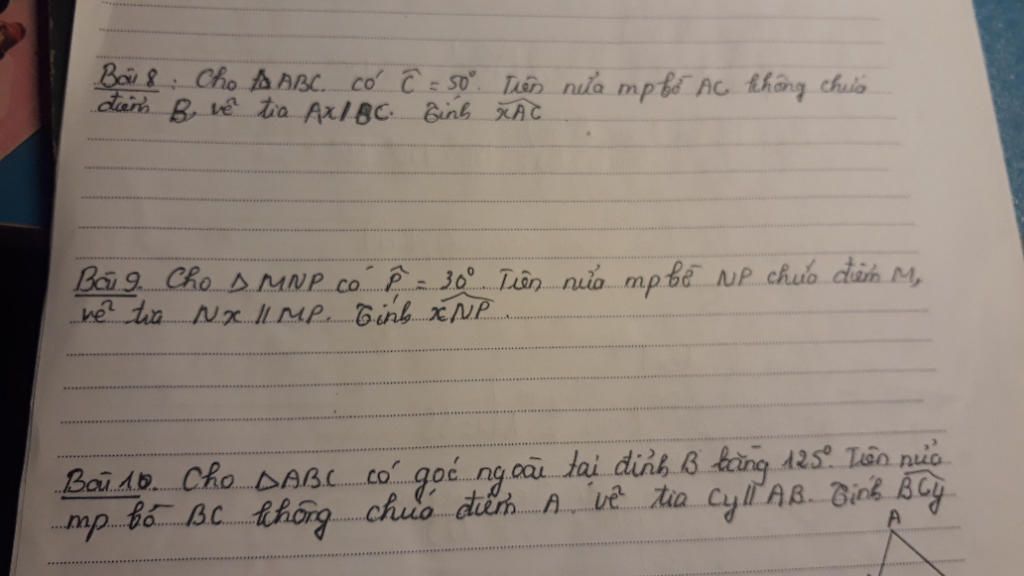 Bài 8 : Cho ΔABC. có Ĉ = 50°. Trên nửa mp bờ AC không chứa
điểm B, vẽ tia Ax // BC. Tính xAC
Bài 9. Cho Δ MNP có P̂ = 30°. Trên nửa mp bờ NP chứa điểm M,
vẽ tia Nx // MP. Tính xNP.
Bài 10. Cho ΔABC có góc ngoài tại đỉnh B bằng 125°. Trên nửa
mp bờ BC không chứa điểm A. vẽ tia Cy // AB. Tính BCy
A